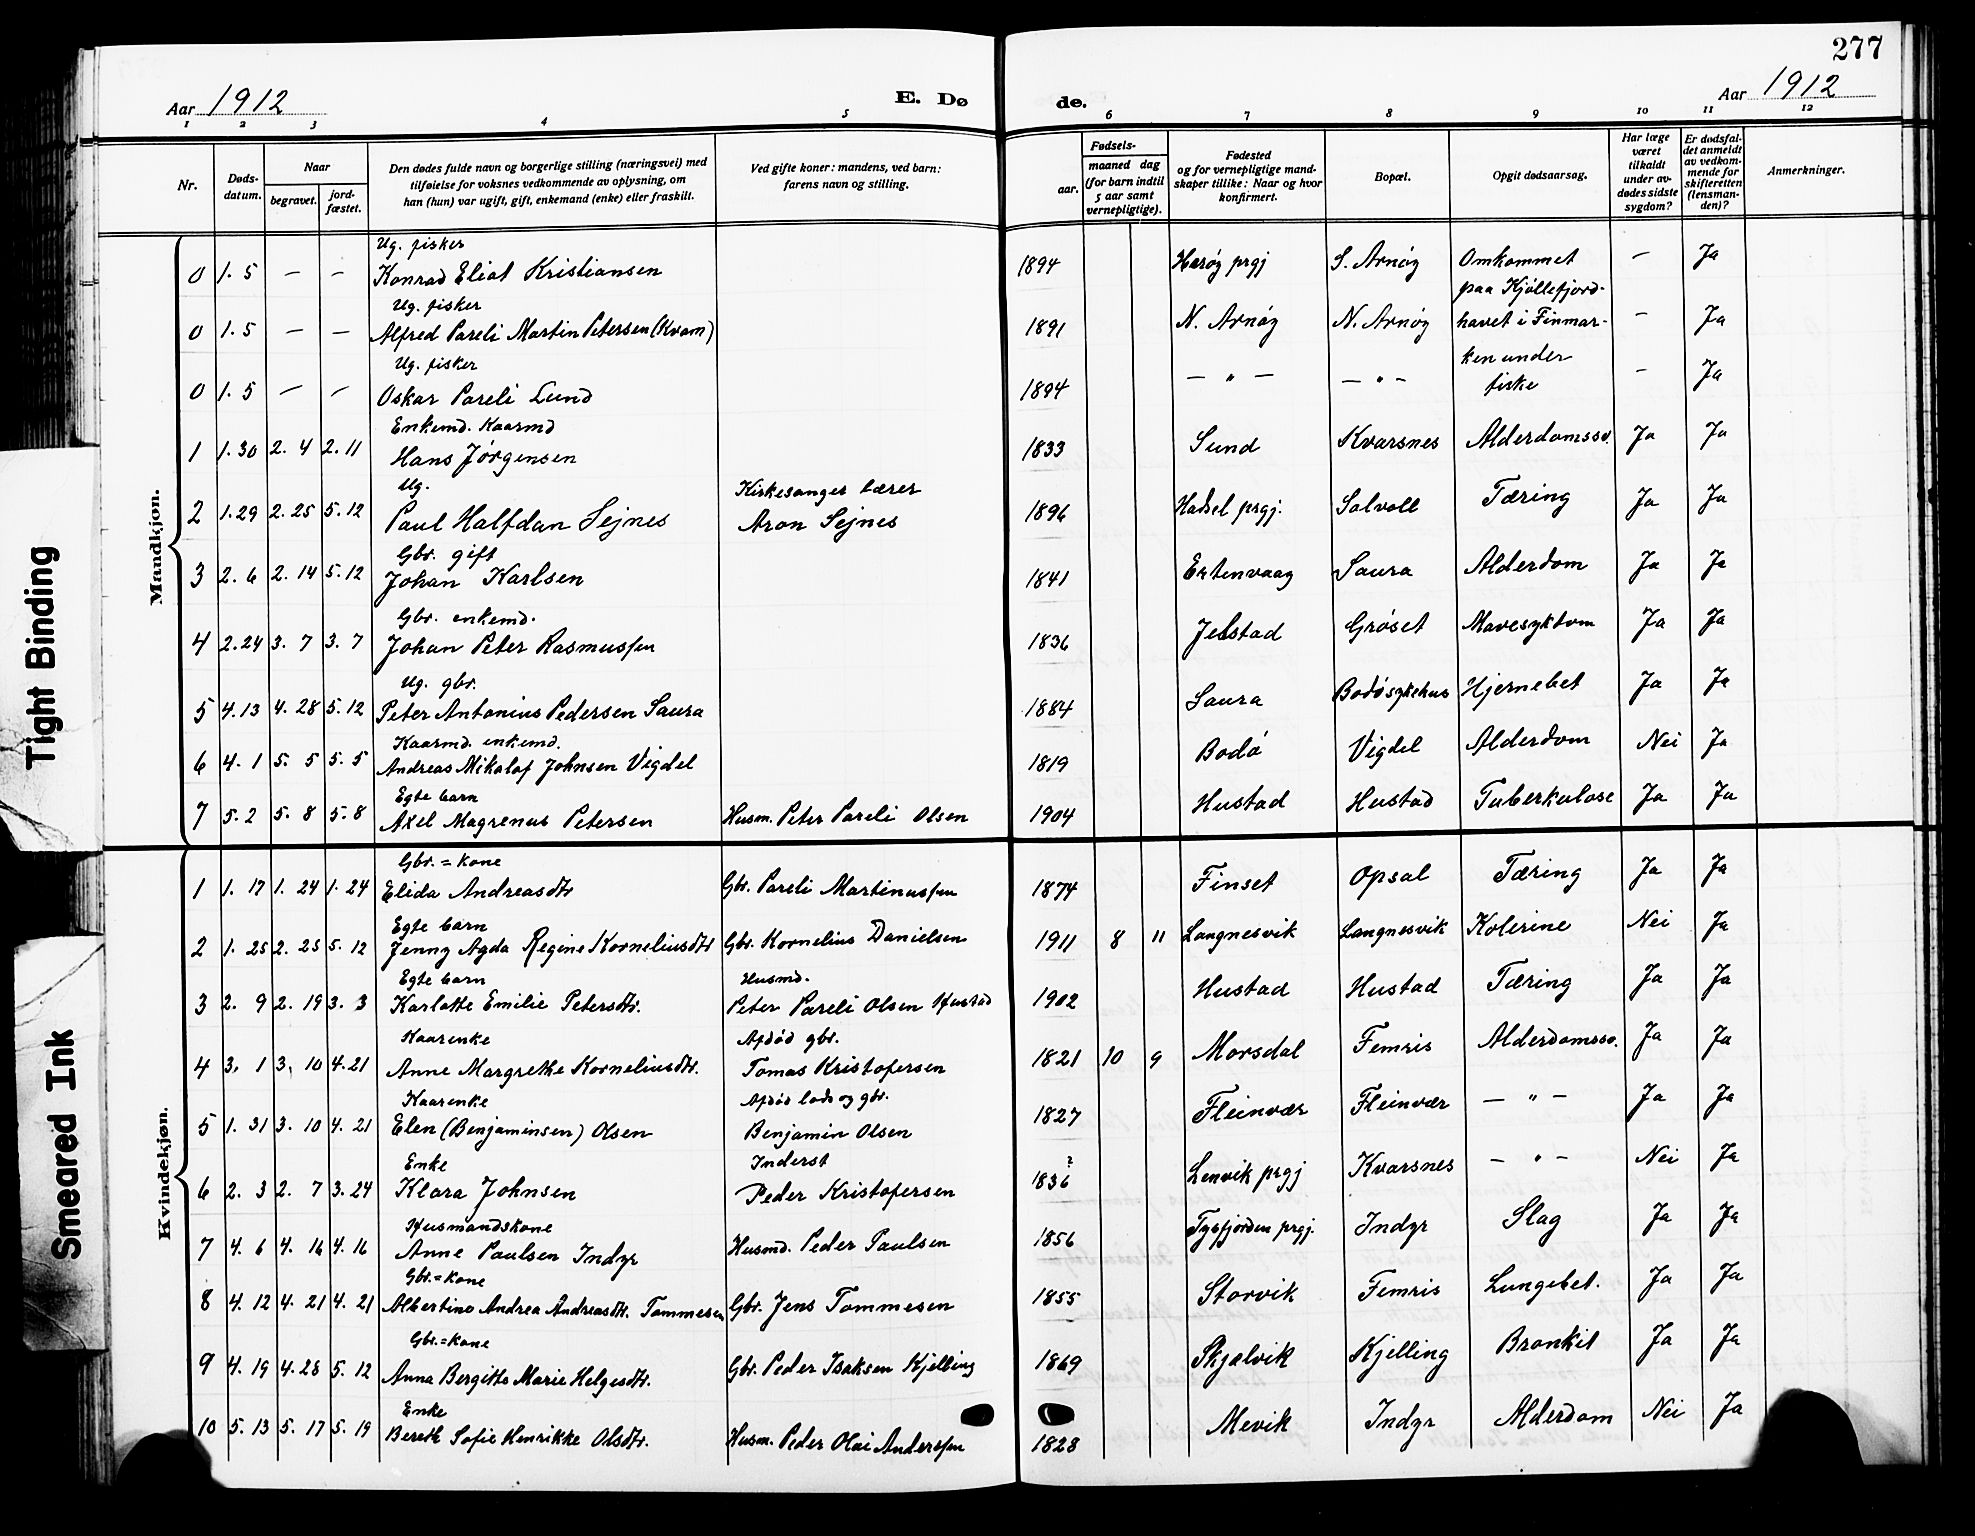 277
Aar 1912
E. Dø
de.
Aar 1912
1 2 3 4 5 6 7 8 9 10 11 12
Nr.
Døds-
datum.
Naar
begravet.
jord-
fæstet.
Den dødes fulde navn og borgerlige stilling (næringsvei) med
tilføielse for voksnes vedkommende av oplysning, om
han (hun) var ugift, gift, enkemand (enke) eller fraskilt.
Ved gifte koner: mandens, ved barn:
farens navn og stilling.
Fødsels-
aar.
maaned dag
(for barn indtil
5 aar samt
vernepligtige).
Fødested
og for vernepligtige mand-
skaper tillike: Naar og hvor
konfirmert.
Bopæl.
Opgit dødsaarsag.
Har læge
været
tilkaldt
under av-
dødes sidste
sygdom?
Er dødsfal-
det anmeldt
av vedkom-
mende for
skifteretten
(lensman-
den)?
Anmerkninger.
Mandkjøn.
Ug. fisker
0 1. 5 — — Konrad Eliat Kristiansen 1894 Herøy prgj S. Arnøy Omkommet — Ja
paa Kjøllefjord-
Ug. fisker
0 1. 5 — — Alfred Pareli Martin Petersen (Kvam) 1891 N. Arnøy N. Arnøy havet i Finmar- — Ja
Ug. fisker
ken under
0 1. 5 — — Oskar Pareli Lund 1894 — " — — " — fiske — Ja
Enkemd. Kaarmd
1 1. 30 2. 4 2. 11 Hans Jørgensen 1833 Sund Kvarsnes Alderdomssv. Ja Ja
Ug. Kirkesanger lærer
2 1. 29 2. 25 5. 12 Paul Halfdan Sejnes Aron Sejnes 1896 Hadsel prgj. Solvoll Tæring Ja Ja
Gbr. gift
3 2. 6 2. 14 5. 12 Johan Karlsen 1841 Ertenvaag Saura Alderdom Ja Ja
Gbr. enkemd.
4 2. 24 3. 7 3. 7 Johan Peter Rasmussen 1836 Jelstad Grøset Mavesykdom Ja Ja
Ug. gbr.
5 4. 13 4. 28 5. 12 Peter Antonius Pedersen Saura 1884 Saura Bodøsykehus Hjernebet Ja Ja
Kaarmd. enkemd.
6 4. 1 5. 5 5. 5 Andreas Mikalaf Johnsen Vigdel 1819 Bodø Vigdel Alderdom Nei Ja
Egte barn
7 5. 2 5. 8 5. 8 Axel Magrenus Petersen Husm. Peter Pareli Olsen 1904 Hustad Hustad Tuberkulose Ja Ja
Kvindekjøn.
Gbr. = kone
1 1. 17 1. 24 1. 24 Elida Andreasdtr Gbr. Pareli Martinussen 1874 Finset Opsal Tæring Ja Ja
Egte barn
2 1. 25 2. 25 5. 12 Jenny Agda Regine Korneliusdtr Gbr. Kornelius Danielsen 1911 8 11 Langnesvik Langnesvik Kolerine Nei Ja
Egte barn Husmd.
3 2. 9 2. 19 3. 3 Karlotte Emilie Petersdtr. Peter Pareli Olsen Hustad 1902 Hustad Hustad Tæring Ja Ja
Kaarenke Afdød gbr.
4 3. 1 3. 10 4. 21 Anne Margrethe Korneliusdtr. Tomas Kristofersen 1821 10 9 Morsdal Femris Alderdomssv. Ja Ja
Kaarenke Afdød lods og gbr.
5 1. 31 3. 10 4. 21 Elen (Benjaminsen) Olsen Benjamin Olsen 1827 Fleinvær Fleinvær — " — Ja Ja
Enke Inderst
6 2. 3 2. 7 3. 24 Klara Johnsen Peder Kristofersen 1836 ? Lenvik prgj Kvarsnes — " — Nei Ja
Husmandskone
7 4. 6 4. 16 4. 16 Anne Paulsen Indyr Husmd. Peder Paulsen 1856 Tysfjorden prgj. Indyr Slag Ja Ja
Gbr. = kone
8 4. 12 4. 21 4. 21 Albertine Andrea Andreasdtr. Tommesen Gbr. Jens Tommesen 1855 Storvik Femris Lungebet. Ja Ja
Gbr. = kone
9 4. 19 4. 28 5. 12 Anna Bergitte Marie Helgesdtr. Gbr. Peder Isaksen Kjelling 1869 Skjælvik Kjelling Bronkit Ja Ja
Enke
10 5. 13 5. 17 5. 19 Bereth Sofie Henrikke Olsdtr. Husm. Peder Olai Anderssen 1828 Mevik Indyr Alderdom Nei Ja
Tight Binding
Smeared Ink